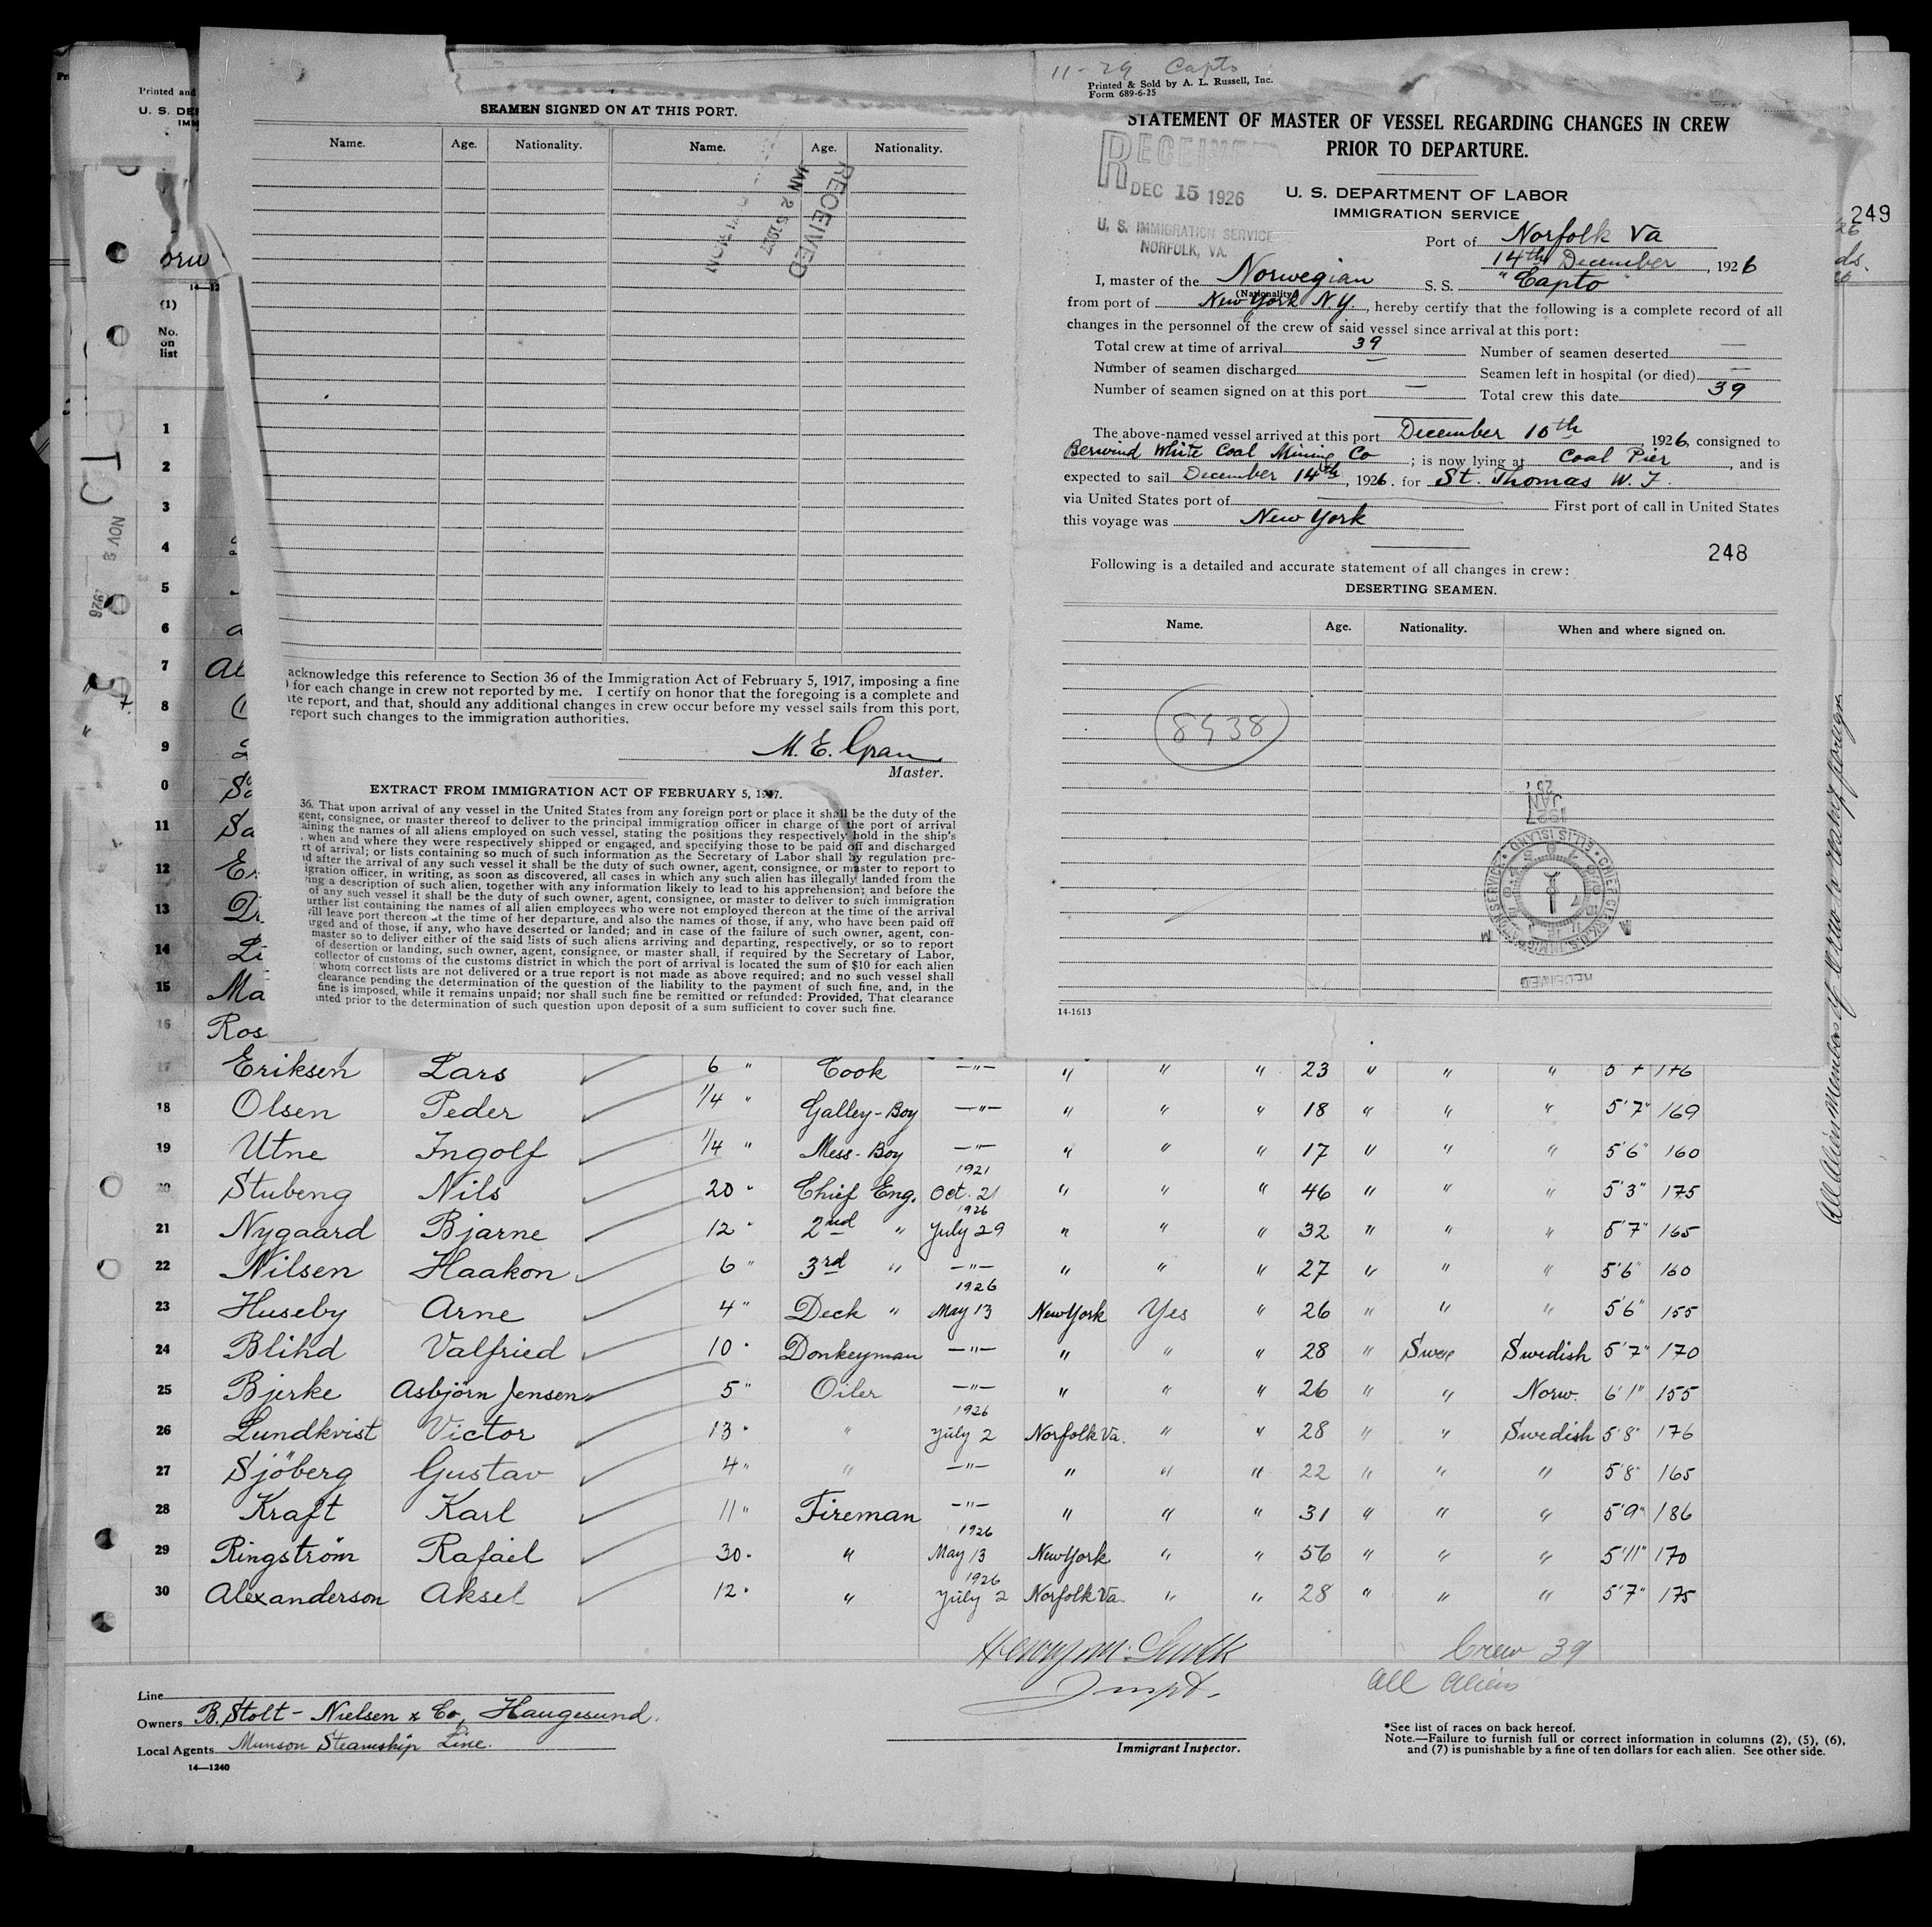 11-29 Capto
Printed & Sold by A. L. Russell, Inc.
Form 689-6-25
STATEMENT OF MASTER OF VESSEL REGARDING CHANGES IN CREW
PRIOR TO DEPARTURE.
RECEIVED
DEC 15 1926
U. S. IMMIGRATION SERVICE
NORFOLK, VA.
U. S. DEPARTMENT OF LABOR
IMMIGRATION SERVICE
249
Port of Norfolk Va
14th December, 1926
I, master of the Norwegian S. S. "Capto"
(Nationality)
from port of New York N.Y., hereby certify that the following is a complete record of all
changes in the personnel of the crew of said vessel since arrival at this port:
Total crew at time of arrival 39 Number of seamen deserted —
Number of seamen discharged — Seamen left in hospital (or died) —
Number of seamen signed on at this port — Total crew this date 39
The above-named vessel arrived at this port December 10th, 1926, consigned to
Berwind White Coal Mining Co; is now lying at Coal Pier, and is
expected to sail December 14th, 1926. for St. Thomas W. I.
via United States port of First port of call in United States
this voyage was New York
248
Following is a detailed and accurate statement of all changes in crew:
DESERTING SEAMEN.
Name. Age. Nationality. When and where signed on.
8938
JAN 25 1927
RECEIVED
14-1613
SEAMEN SIGNED ON AT THIS PORT.
Name. Age. Nationality. Name. Age. Nationality.
RECEIVED
JAN 25 1927
acknowledge this reference to Section 36 of the Immigration Act of February 5, 1917, imposing a fine
) for each change in crew not reported by me. I certify on honor that the foregoing is a complete and
te report, and that, should any additional changes in crew occur before my vessel sails from this port,
report such changes to the immigration authorities.
M. E. Gran
Master.
EXTRACT FROM IMMIGRATION ACT OF FEBRUARY 5, 1917.
36. That upon arrival of any vessel in the United States from any foreign port or place it shall be the duty of the
gent, consignee, or master thereof to deliver to the principal immigration officer in charge of the port of arrival
aining the names of all aliens employed on such vessel, stating the positions they respectively hold in the ship's
, when and where they were respectively shipped or engaged, and specifying those to be paid off and discharged
rt of arrival; or lists containing so much of such information as the Secretary of Labor shall by regulation pre-
d after the arrival of any such vessel it shall be the duty of such owner, agent, consignee, or master to report to
igration officer, in writing, as soon as discovered, all cases in which any such alien has illegally landed from the
ving a description of such alien, together with any information likely to lead to his apprehension; and before the
of any such vessel it shall be the duty of such owner, agent, consignee, or master to deliver to such immigration
urther list containing the names of all alien employees who were not employed thereon at the time of the arrival
ill leave port thereon at the time of her departure, and also the names of those, if any, who have been paid off
rged and of those, if any, who have deserted or landed; and in case of the failure of such owner, agent, con-
master so to deliver either of the said lists of such aliens arriving and departing, respectively, or so to report
of desertion or landing, such owner, agent, consignee, or master shall, if required by the Secretary of Labor,
collector of customs of the customs district in which the port of arrival is located the sum of $10 for each alien
whom correct lists are not delivered or a true report is not made as above required; and no such vessel shall
clearance pending the determination of the question of the liability to the payment of such fine, and, in the
fine is imposed, while it remains unpaid; nor shall such fine be remitted or refunded: Provided, That clearance
nted prior to the determination of such question upon deposit of a sum sufficient to cover such fine.
Printed and
U. S. DE
IMM
(1)
No.
on
list
1
2
3
4
5
6
7 Al
8
9
0
11 Sa
12
13
14 Li
15 Ma
16 Ros
17 Eriksen Lars 6 " Cook —"— " " " 23 " " "
18 Olsen Peder 1/4 " Galley-Boy —"— " " " 18 " " " 5'7" 169
19 Utne Ingolf 1/4 " Mess-Boy —"— " " " 17 " " " 5'6" 160
20 Stubeng Nils 20 " Chief Eng. 1921 Oct. 21 " " " 46 " " " 5'3" 175
21 Nygaard Bjarne 12 " 2nd " 1926 July 29 " " " 32 " " " 5'7" 165
22 Nilsen Haakon 6 " 3rd " —"— " " " 27 " " " 5'6" 160
23 Huseby Arne 4 " Deck " 1926 May 13 New York Yes " 26 " " " 5'6" 155
24 Blihd Valfried 10 " Donkeyman —"— " " " 28 " Swe Swedish 5'7" 170
25 Bjerke Asbjörn Jensen 5 " Oiler —"— " " " 26 " " Norw. 6'1" 155
26 Lundkvist Victor 13 " " 1926 July 2 Norfolk Va. " " 28 " " Swedish 5'8" 176
27 Sjöberg Gustav 4 " " —"— " " " 22 " " " 5'8" 165
28 Kraft Karl 11 " Fireman —"— " " " 31 " " " 5'9" 186
29 Ringström Rafael 30 " " 1926 May 13 New York " " 56 " " " 5'11" 170
30 Alexanderson Aksel 12 " " 1926 July 2 Norfolk Va. " " 28 " " " 5'7" 175
Crew 39
All Aliens
Line
Owners B. Stolt-Nielsen & Co, Haugesund.
Local Agents Munson Steamship Line.
14—1240
Immigrant Inspector.
*See list of races on back hereof.
Note.—Failure to furnish full or correct information in columns (2), (5), (6),
and (7) is punishable by a fine of ten dollars for each alien. See other side.